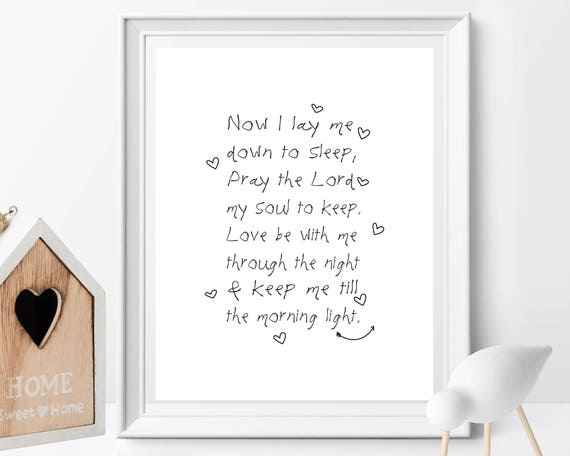 Now I lay me
down to sleep,
Pray the Lord
my soul to keep.
Love be with me
through the night
& keep me till
the morning light.
HOME
Sweet Home